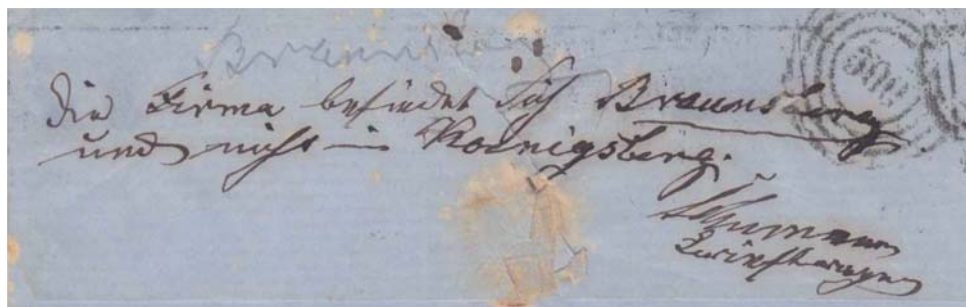 Braunsberg
Die Firma befindet sich Braunsberg
und nicht in Koenigsberg.
Schumann
Briefträger